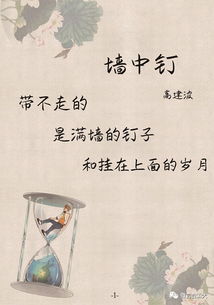 墙中钉
高建波
带不走的
是满墙的钉子
和挂在上面的岁月
-1-